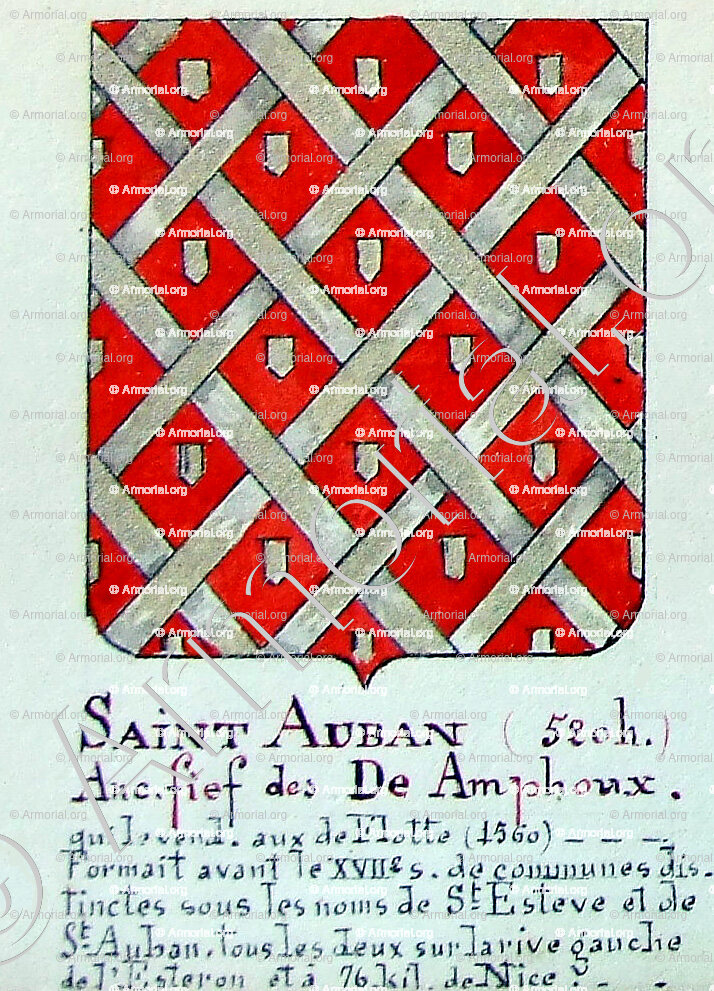 SAINT AUBAN (520h.)
Anc. fief des De Amphoux.
qui le vend. aux de Flotte (1560) _ _ _.
Formait avant le XVIIe s. de communes dis-
tinctes sous les noms de St Esteve et de
St Auban. tous les deux sur la rive gauche
de l'Esteron et à 76 kil. de Nice _ _
© Armorial.org